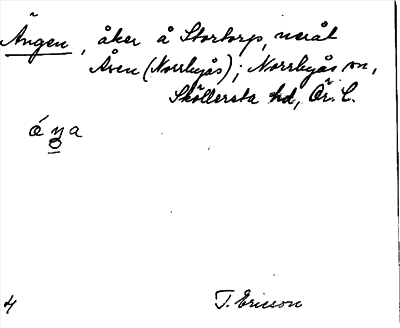 Ängen, åker å Stortorp, ueråt
Åsen (Norrbyås); Norrbyås sn,
Sköllersta hd, Ör. l.
T. Ericsson
4